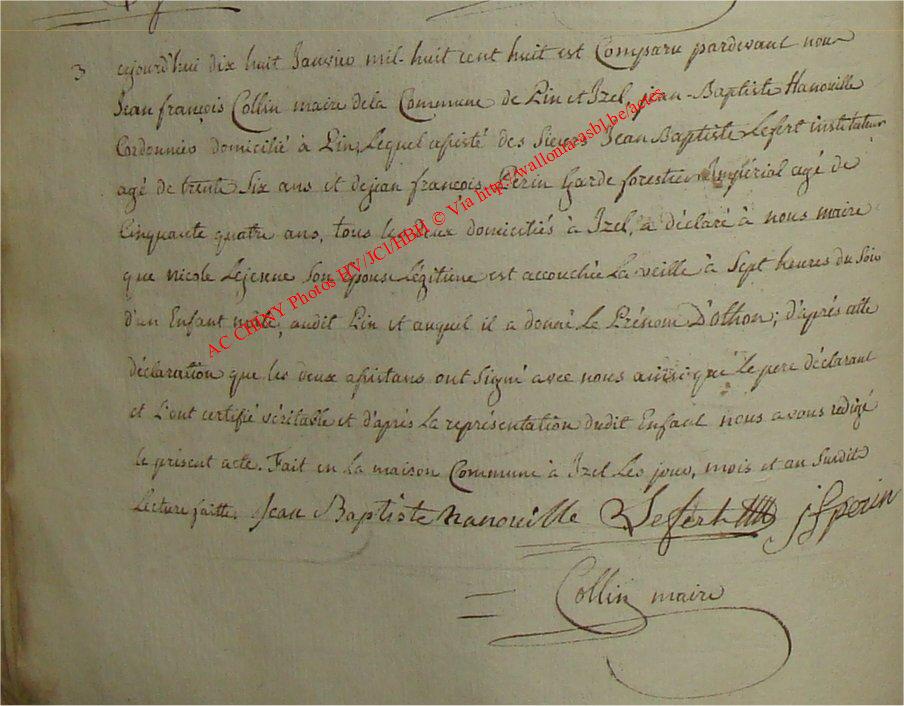 3 aujourd'hui dix huit Janvier mil-huit cent huit est Comparu pardevant nous
Jean françois Collin maire dela Commune de Pin et Izel, jean-Baptiste Hanouille
Cordonnier domicilié à Pin, Lequel assisté des Sieurs Jean Baptiste Lefert instituteur
agé de trente Six ans et dejean francois Perin Garde forestier Impérial agé de
Cinquante quatre ans, tous les deux domiciliés à Izel, a déclaré à nous maire
que nicole Lejeune Son épouse Légitime est accouchée La veille à Sept heures du Soir
d'un Enfant mâle, audit Pin et auquel il a donné Le Prénom D'othon; d'après cette
déclaration que les deux assistans ont Signé avec nous ainsi que le pere déclarant
et L'ont certifié véritable et d'après La représentation dudit Enfant nous avons redigé
le présent acte. Fait en La maison Commune à Izel Les jour, mois et an Susdits
Lecture faitte. Jean Baptiste hanouille Lefert jfperin
Collin maire
AC CHINY Photos HV/JCl/HBH © Via http://wallonia-asbl.be/actes